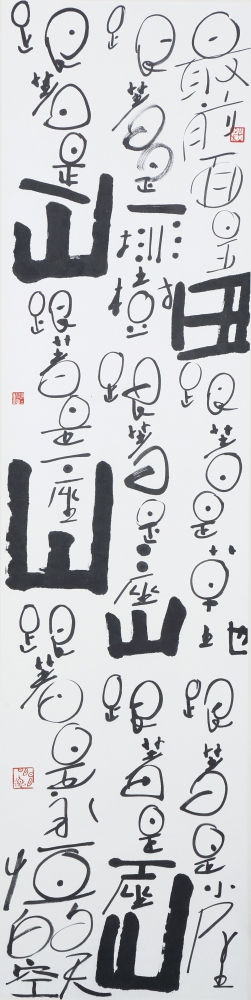 最前面是田跟著是草地跟著是小屋
跟著是一排樹跟著是座山跟著是一座山
跟著是山跟著是一座山跟著是永恆的天空